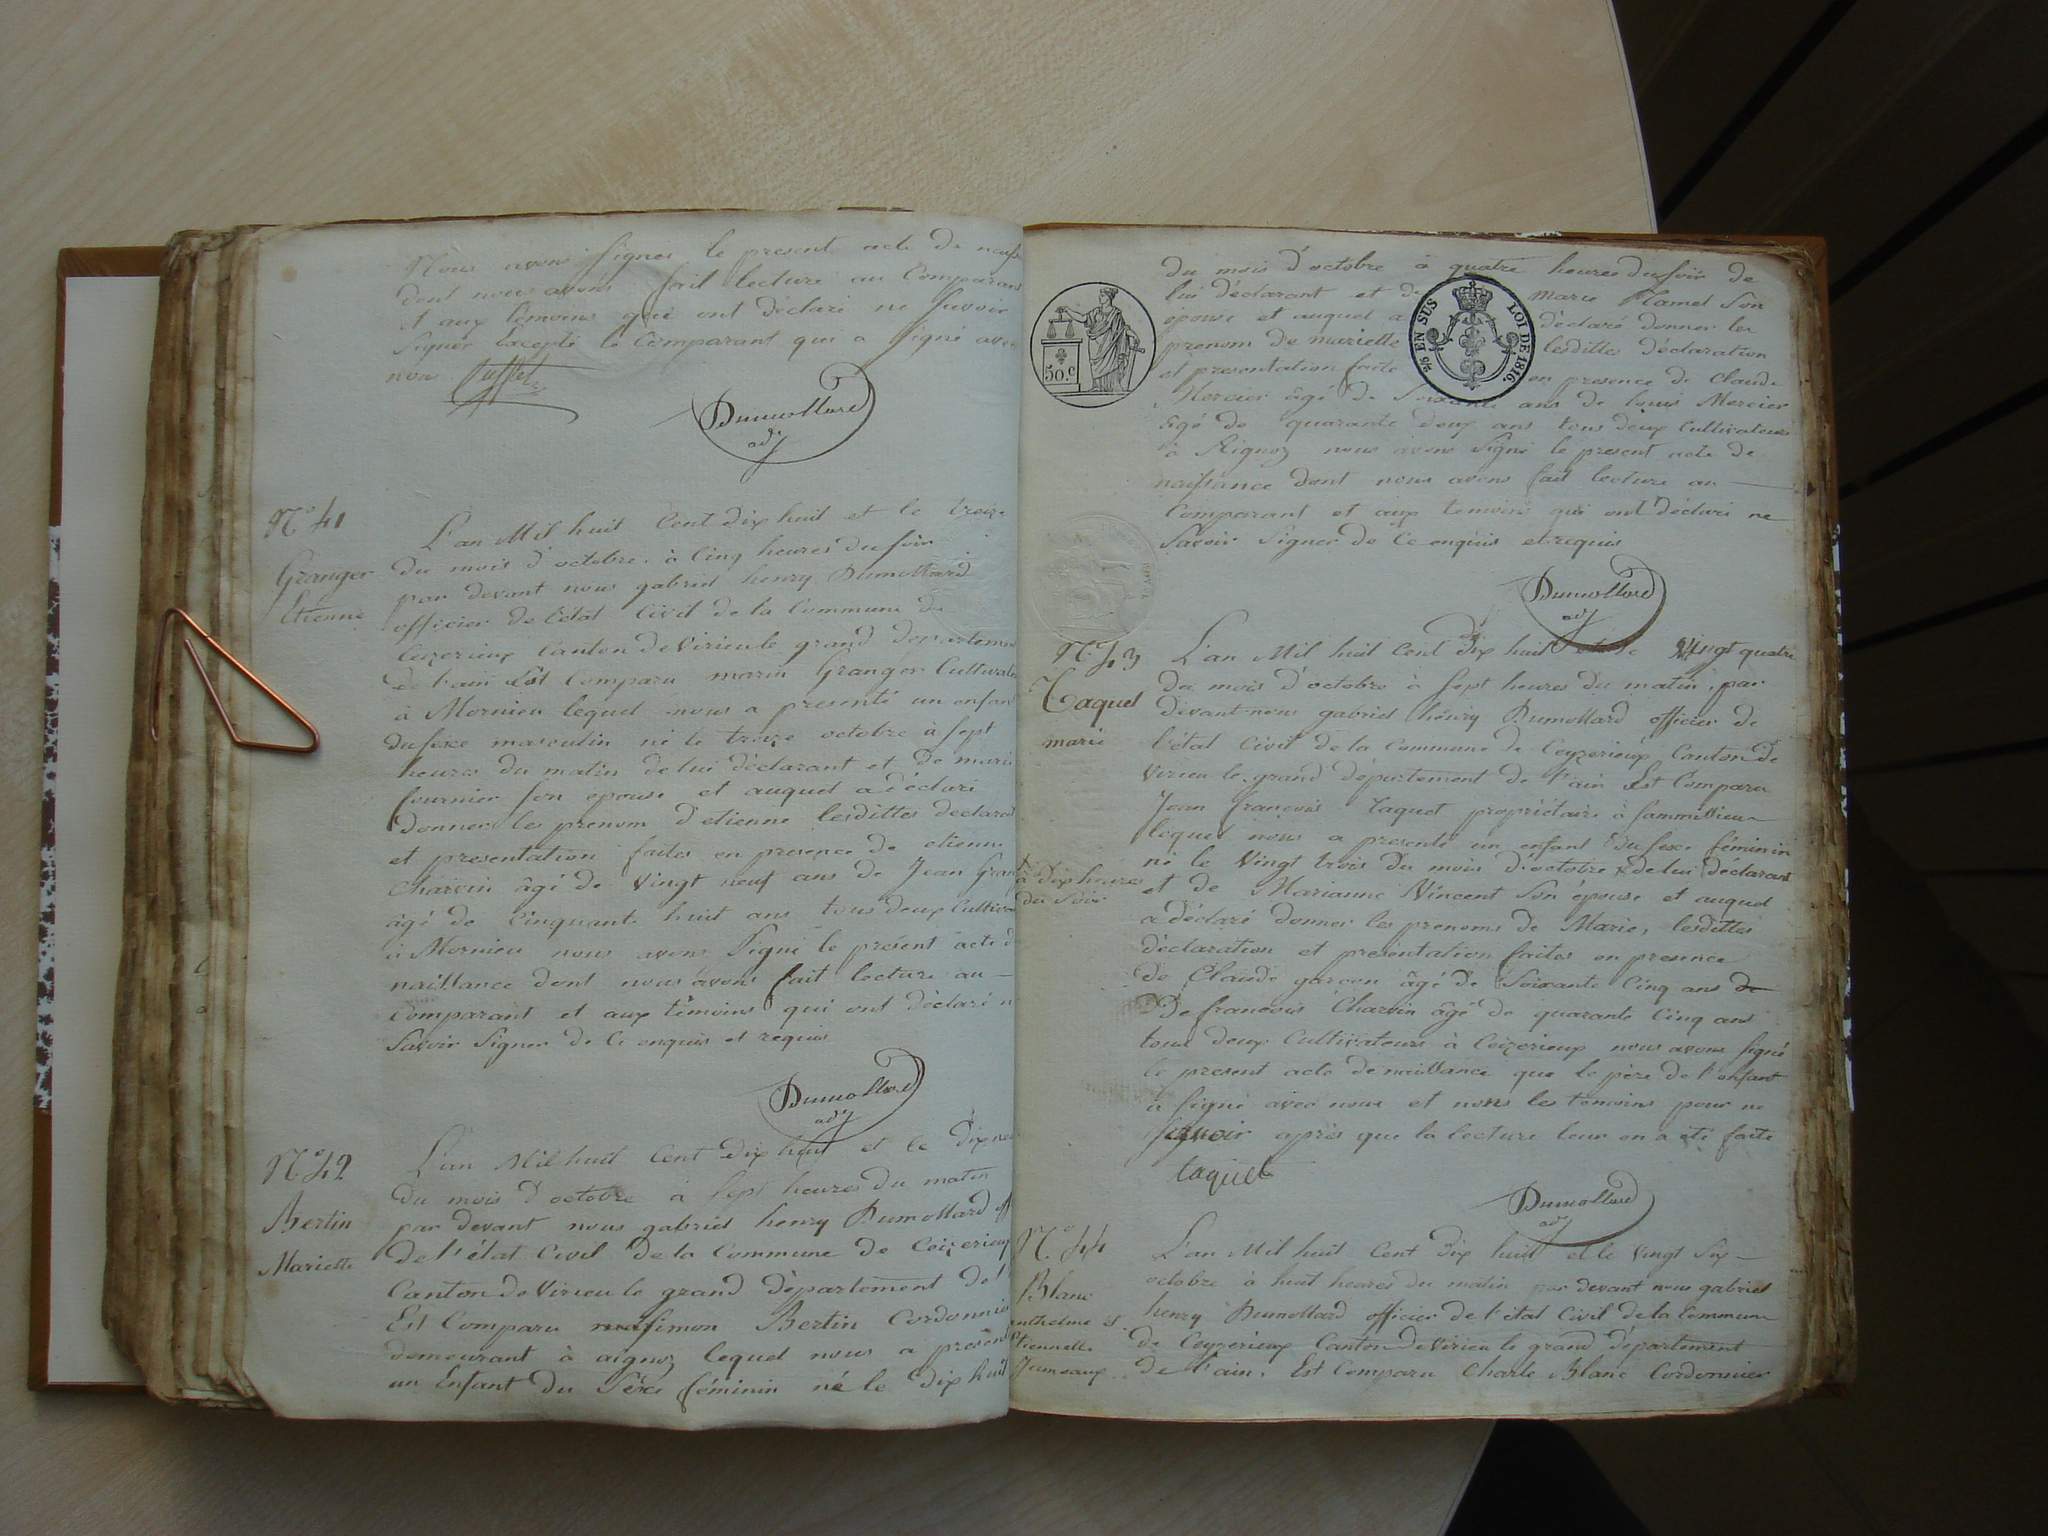 Nous avons signés le present acte de naiss
dont nous avons fait lecture au Comparant
et aux temoins qui ont déclaré ne savoir
signer Excepté le Comparant qui a signé avec
nous
Dumollard
adj
N.° 41
Granger
Etienne
L'an Mil huit Cent dix huit et le treize
du mois d'octobre à Cinq heures du soir
par devant nous gabriel henry Dumollard
officier de l'état Civil de la Commune de
Ceizerieux Canton de Virieu le grand departemen
de l'ain Est Comparu marin Granger Cultivate
à Mornieu lequel nous a presenté un enfan
du sexe masculin né le treize octobre à sept
heures du matin de lui déclarant et de marie
fournier son epouse et auquel a déclaré
donner les prenom d'etienne lesdittes declarat
et presentation faites en presence de etienne
Charvin âgé de Vingt neuf ans de Jean Gran
âgé de Cinquante huit ans tous deux Cultiva
à Mornieu nous avons signé le présent acte d
naissance dont nous avons fait lecture au
Comparant et aux témoins qui ont déclaré n
savoir signer de Ce enquis et requis
Dumollard
adj
N.° 42
Bertin
Mariette
L'an Mil huit Cent dix huit et le dix neu
du mois d'octobre à sept heures du matin
par devant nous gabriel henry Dumollard off
de l'état Civil de la Commune de Ceizerieux
Canton de Virieu le grand département de l'
Est Comparu simon Bertin Cordonnie
demeurant à aignoz lequel nous a present
un Enfant du Sexe féminin né le dix huit
du mois d'octobre à quatre heures du soir de
lui déclarant et de marie Flamel son
épouse et auquel a déclaré donner les
prenom de mariette lesdittes déclaration
et presentation faite en presence de Claude
Mercier âgé de Soixante ans de louis Mercier
âgé de quarante deux ans tous deux Cultivateurs
à Aignoz nous avons signé le present acte de
naissance dont nous avons fait lecture au
Comparant et aux temoins qui ont déclaré ne
Savoir Signer de Ce enquis et requis
50.c
EN SUS
LOI DE 1816.
Dumollard
adj
N.° 43
Taquet
marie
L'an Mil huit Cent dix huit et le Vingt quatre
du mois d'octobre à sept heures du matin, par
devant nous gabriel henry Dumollard officier de
l'état Civil de la Commune de Ceyzerieux Canton de
Virieu le grand département de l'ain Est Comparu
Jean françois Taquet propriétaire à
lequel nous a presenté un enfant du sexe féminin
né le Vingt trois du mois d'octobre de lui déclarant
à dix heures
du soir
et de Marianne Vincent son épouse et auquel
a déclaré donner les prenoms de Marie, lesdittes
déclaration et presentation faites en presence
de Claude garçon âgé de Soixante Cinq ans de
De francois Charvin âgé de quarante Cinq ans
tous deux Cultivateurs à Ceizerieux nous avons signé
le present acte de naissance que le père de l'enfant
a signé avec nous et non les temoins pour ne
savoir après que la lecture leur en a été faite
taquet
Dumollard
adj
N.° 44
Blanc
anthelme et
Etiennette
Jumeaux
L'an Mil huit Cent dix huit et le Vingt Six
octobre à huit heures du matin par devant nous gabriel
henry Dumollard officier de l'état Civil de la Commune
de Ceyzerieux Canton de Virieu le grand département
de l'ain, Est Comparu Charle Blanc Cordonnier